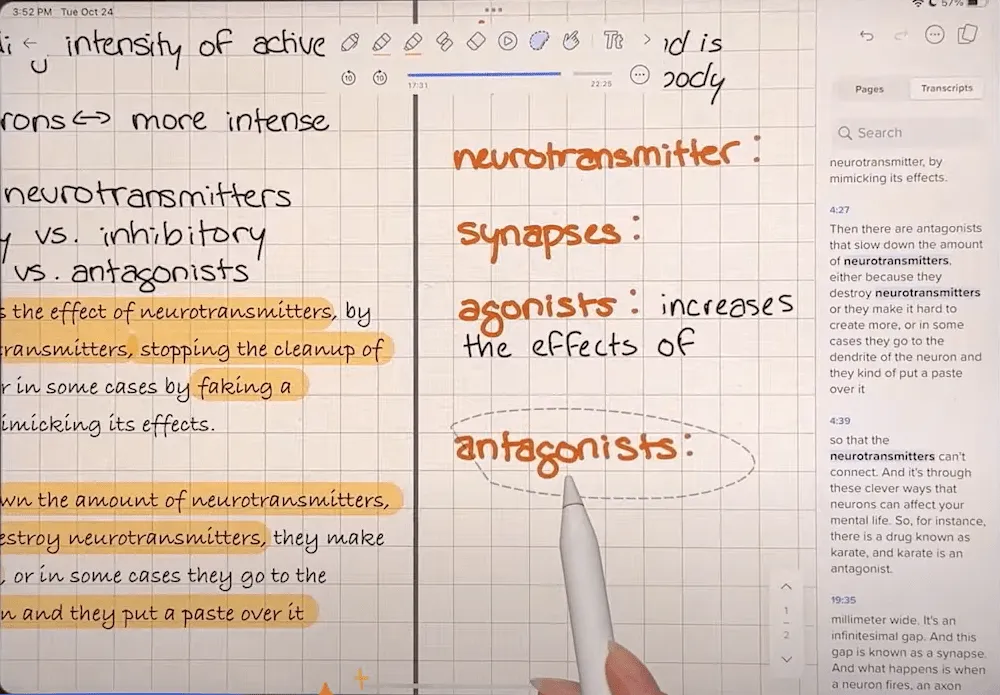 3:52 PM Tue Oct 24
57%
intensity of active
rons <-> more intense
neurotransmitters
y vs. inhibitory
vs. antagonists
s the effect of neurotransmitters, by
ransmitters, stopping the cleanup of
r in some cases by faking a
imicking its effects.
wn the amount of neurotransmitters,
estroy neurotransmitters, they make
, or in some cases they go to the
n and they put a paste over it
10
10
17:31
22:25
Tt
d is
body
neurotransmitter:
synapses:
agonists: increases
the effects of
antagonists:
1
2
Pages
Transcripts
Search
neurotransmitter, by
mimicking its effects.
4:27
Then there are antagonists
that slow down the amount
of neurotransmitters,
either because they
destroy neurotransmitters
or they make it hard to
create more, or in some
cases they go to the
dendrite of the neuron and
they kind of put a paste
over it
4:39
so that the
neurotransmitters can't
connect. And it's through
these clever ways that
neurons can affect your
mental life. So, for instance,
there is a drug known as
karate, and karate is an
antagonist.
19:35
millimeter wide. It's an
infinitesimal gap. And this
gap is known as a synapse.
And what happens is when
a neuron fires, an axon